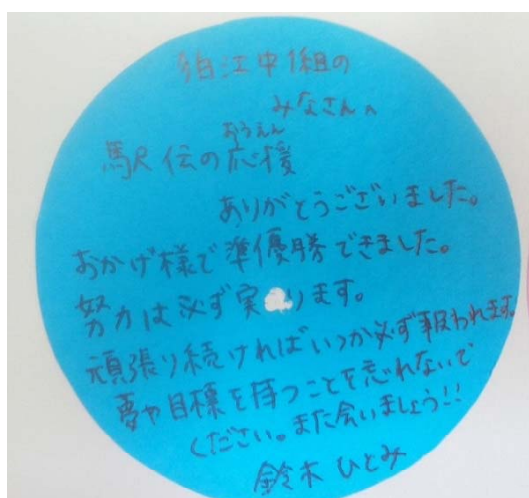 狛江中1組の
みなさんへ
おうえん
駅伝の応援
ありがとうございました。
おかげ様で準優勝できました。
努力は必ず実ります。
頑張り続ければいつか必ず報われます。
夢や目標を持つことを忘れないで
ください。また会いましょう!!
鈴木ひとみ